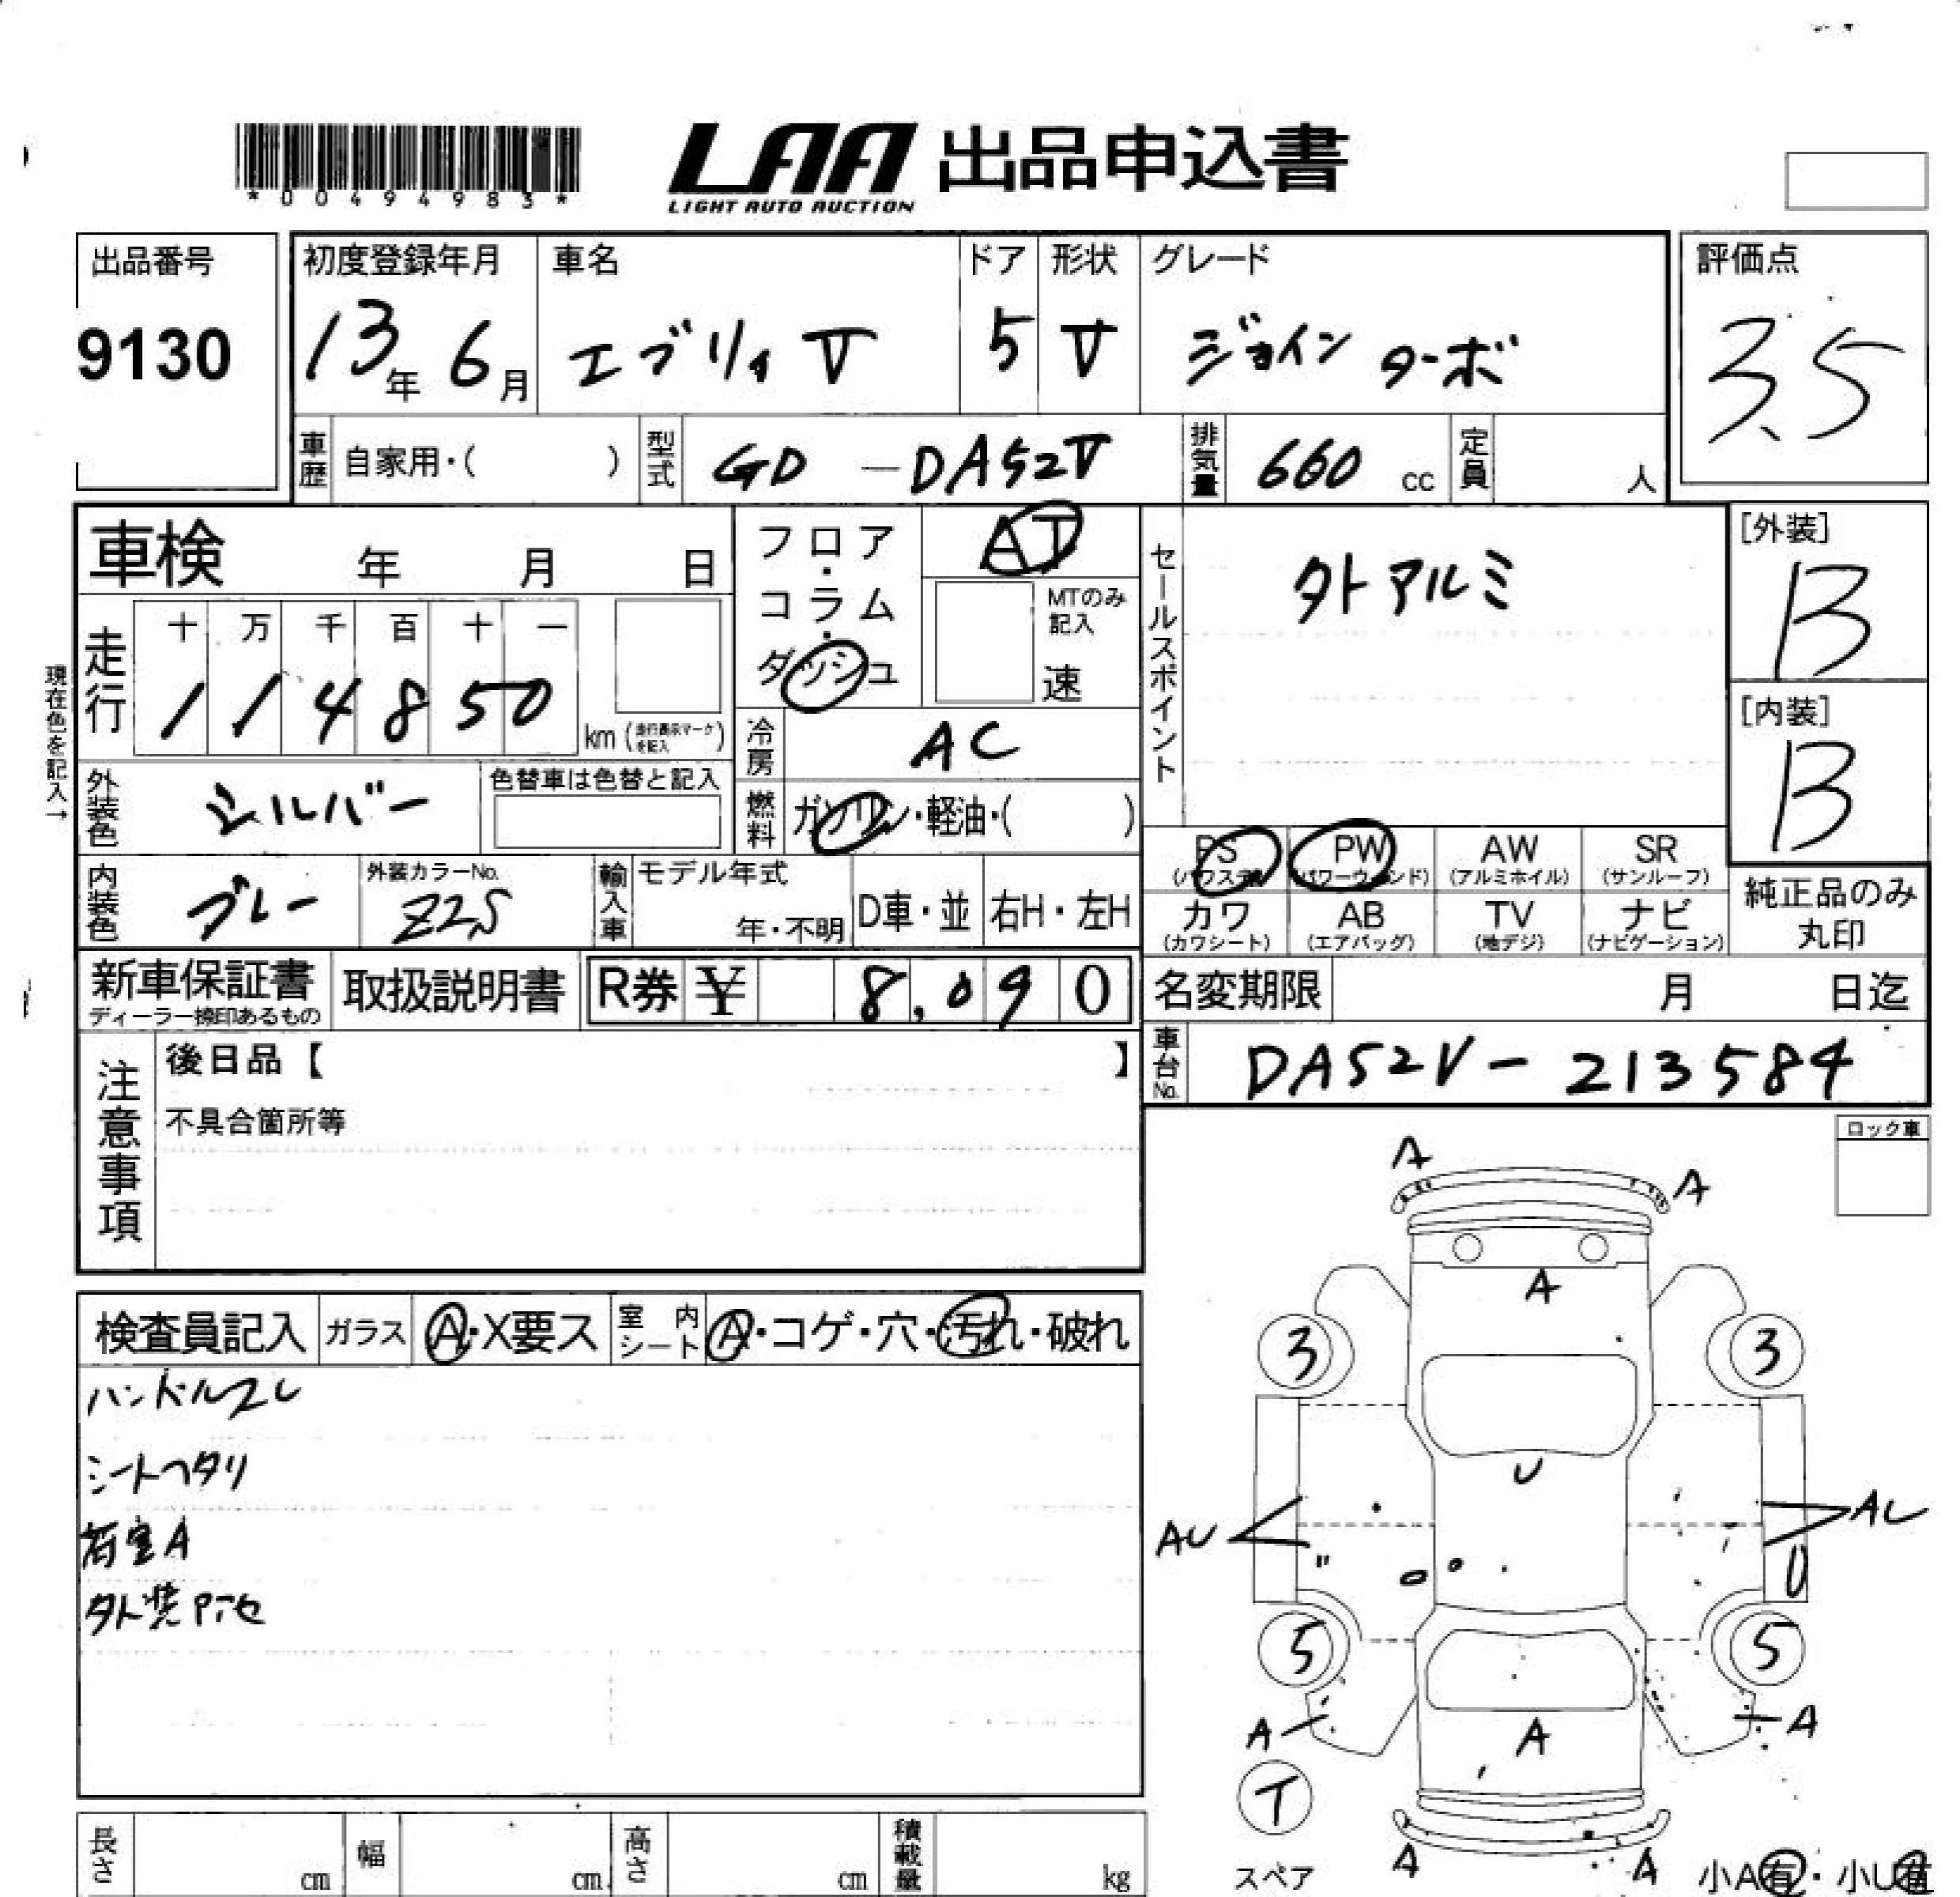 *00494983*
LAA 出品申込書
LIGHT AUTO AUCTION
出品番号
9130
初度登録年月
13年6月
車名
エブリィV
ドア
5
形状
V
グレード
ジョイン ターボ
評価点
3.5
車歴
自家用・( )
型式
GD-DA52V
排気量
660 cc
定員
人
車検 年 月 日
フロア・コラム・ダッシュ
AT
MTのみ記入
速
セールスポイント
外アルミ
[外装]
B
[内装]
B
現在色を記入→
走行
十 万 千 百 十 一
1 1 4 8 5 0
km (走行表示マークを記入)
冷房
AC
外装色
シルバー
色替車は色替と記入
燃料
ガソリン・軽油・( )
PS
(パワステ)
PW
(パワーウィンド)
AW
(アルミホイル)
SR
(サンルーフ)
カワ
(カワシート)
AB
(エアバッグ)
TV
(地デジ)
ナビ
(ナビゲーション)
純正品のみ
丸印
内装色
グレー
外装カラーNo.
Z2S
輸入車
モデル年式
年・不明
D車・並
右H・左H
新車保証書
ディーラー捺印あるもの
取扱説明書
R券 ¥ 8,090
名変期限 月 日迄
車台No.
DA52V-213584
注意事項
後日品【 】
不具合箇所等
ロック車
検査員記入
ガラス
A・X要ス
室内シート
A・コゲ・穴・汚れ・破れ
ハンドルスレ
シートヘタリ
荷室A
外装P
A
A
A
3
3
U
AU
U
5
5
A
A
A
T
スペア
A
A
小A有・小U有
長さ
cm
幅
cm
高さ
cm
積載量
kg